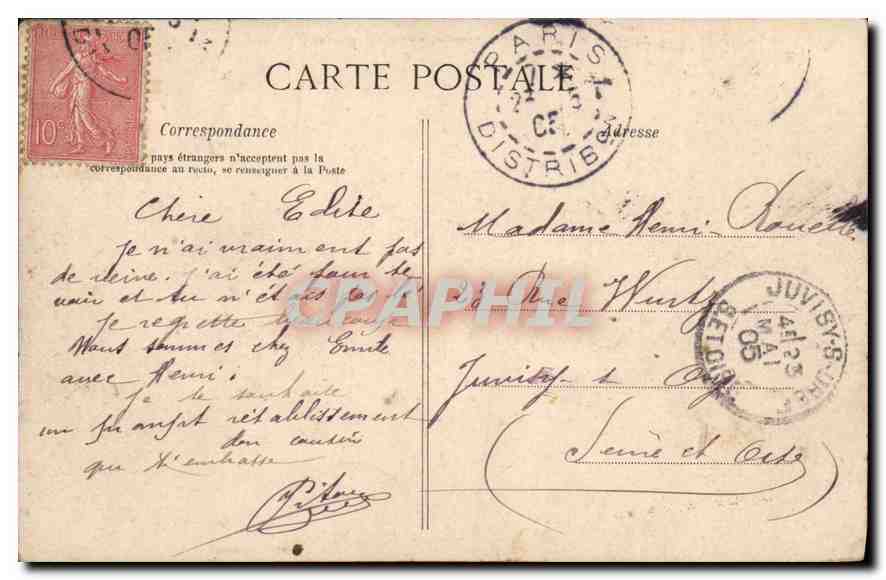 CARTE POSTALE
PARIS
DISTRIBON
10c
Correspondance
pays étrangers n'acceptent pas la
correspondance au recto, se renseigner à la Poste
Adresse
Chère Edite
Je n'ai vraiment pas
de veine. J'ai été pour te
voir et tu n'étais pas là
Je regrette
Nous sommes chez Emile
avec Henri.
Je te souhaite
un prompt rétablissement
ton cousin
qui t'embrasse
Madame Henri
28 Rue Wurtz
Juvisy s Orge
(Seine et Oise)
JUVISY-S-ORGE
4E 23
MAI
05
SEINE-ET-OISE
CPArama